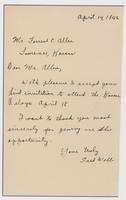 April 14, 1942
Mr. Forrest C. Allen
Lawrence, Kansas
Dear Mr. Allen,
With pleasure I accept your
kind invitation to attend the Kansas
Relays April 18.
I want to thank you most
sincerely for giving me this
opportunity.
Yours truly
Fred